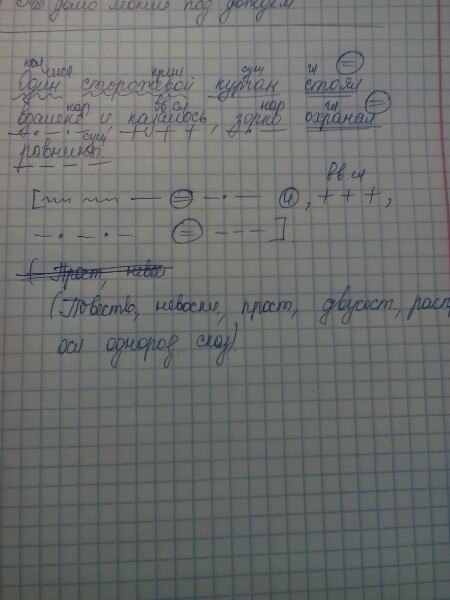 дало под дождем.
кол числ прил сущ гл
Один сторожевой курган стоял
нар вв сл нар гл
вдалеке и, казалось, зорко охранял
сущ
равнины
вв сл
[ и, + + +,
]
( Прост, невос
(Повество, невоскл, прост, двусост, расп,
осл однород. сказ).